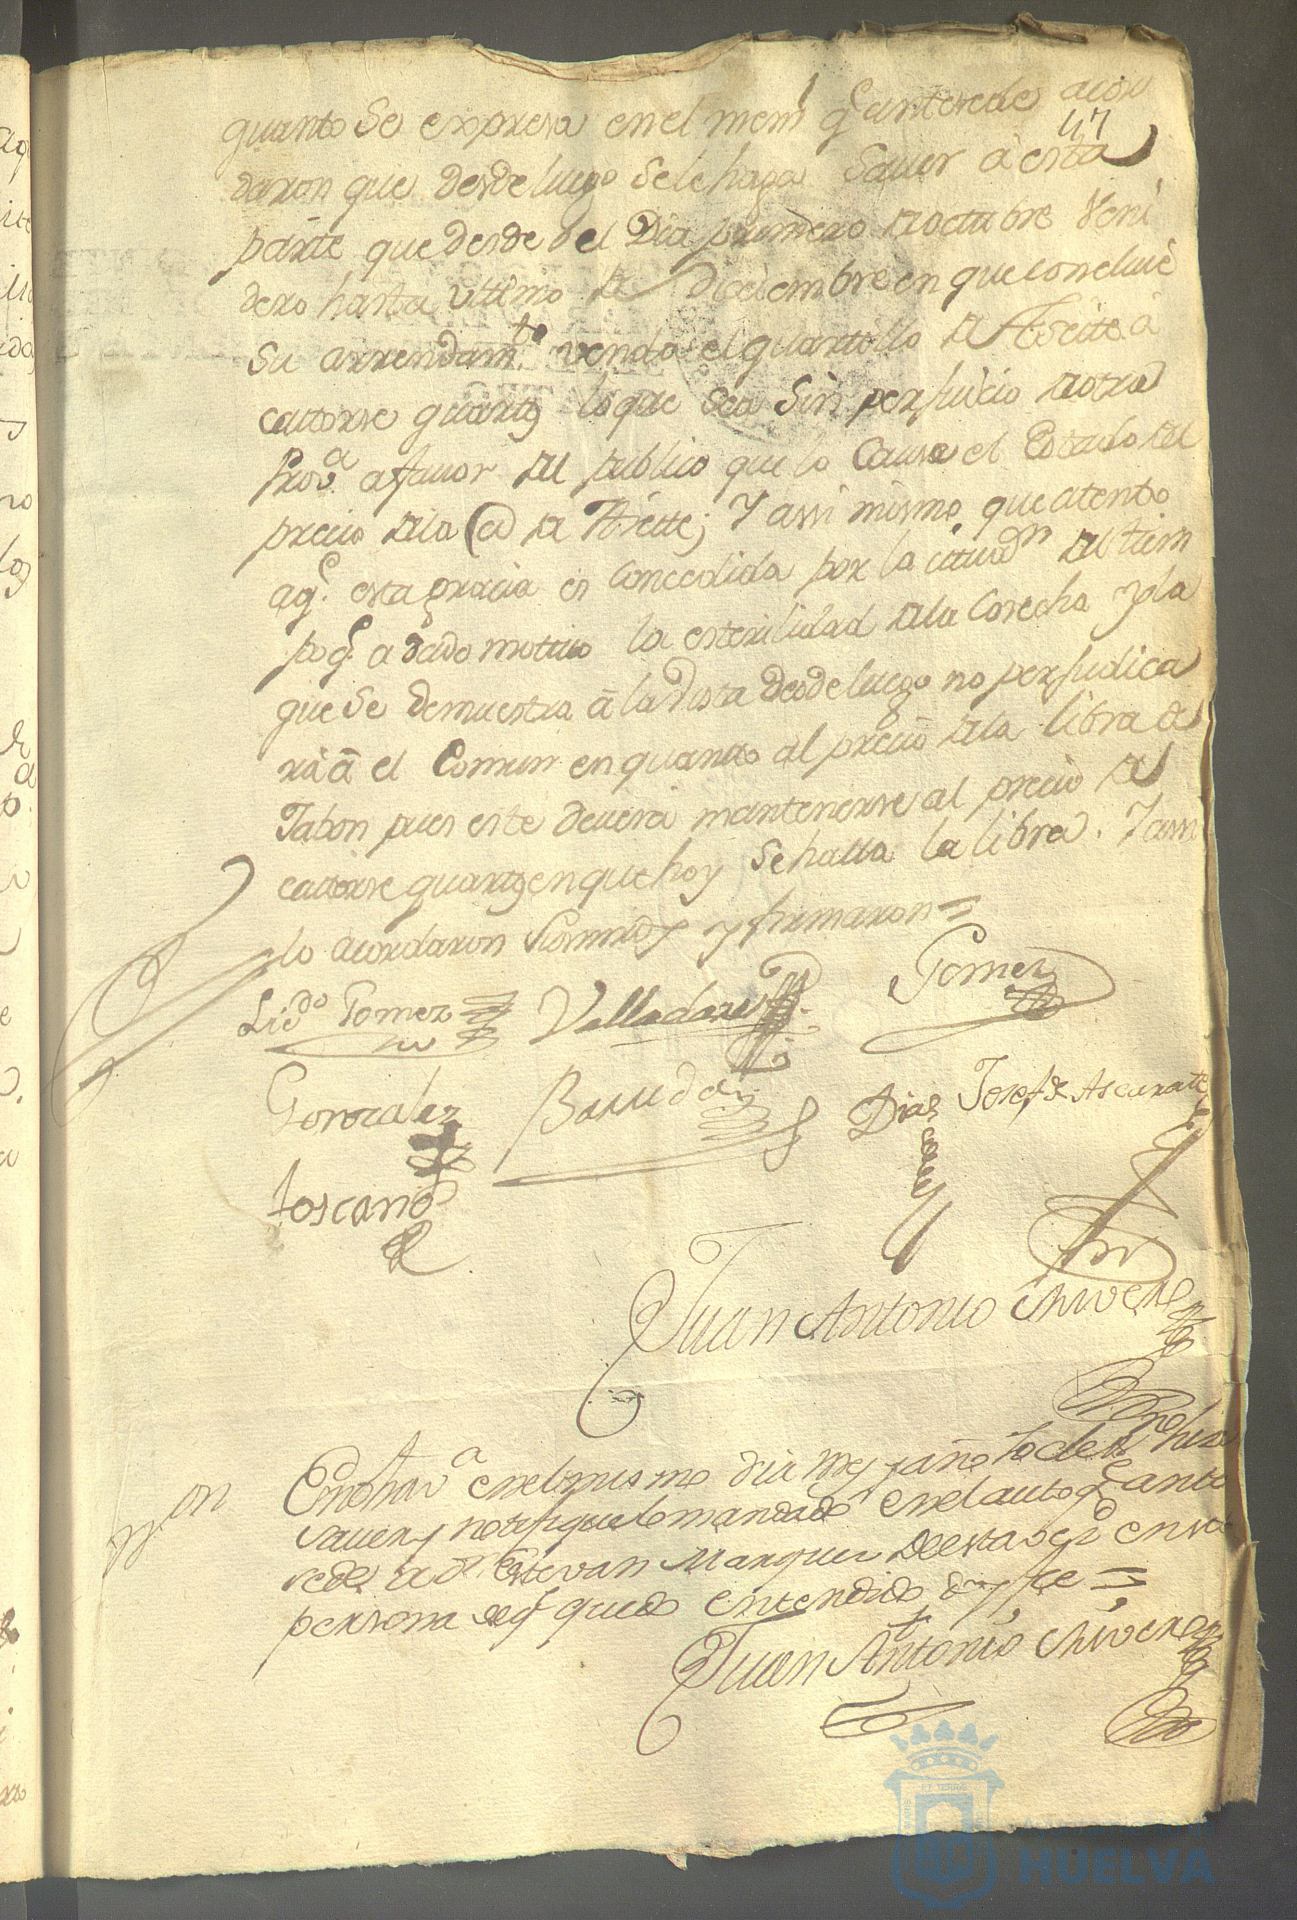 quanto se expresa en el mem.l q.e antesede acor
47
daron que desde luego se le haga saver â esta
parte que desde el Dia primero de octubre veni
dero hasta ultimo de Diciembre en que concluie
su arrendam.to venda el quartillo de Aseite â
catorse quartos lo que sea sin perjuicio de otra
Prov.a a favor del publico que lo cause el Estado del
precio de la @ de Aseite; Y assi mismo que atento
a q.e esta gracia es concedida por la del tiem
po q.e a dado motivo la esterilidad de la Cosecha y la
que se demuestra â la vista desde luego no perjudica
râ â el Comun en quanto al precio de la libra de
Jabon pues este deverá mantenerse al precio de
catorse quartos en que hoy se halla la libra. Y assi
lo acordaron y firmaron =
Lic.do Gomez Valladares Gomez
Gonzalez Diaz Josef de Ascarate
toscano
Juan Antonio Chivere
on En en el mismo dia mes y año Yo el ess.no hise
saver y notifique lo mandado en el auto q.e ante
sede a d.n Estevan Marquez de esta en su
persona de q.e quedo entendido doy fee =
Juan Antonio Chivere
HUELVA